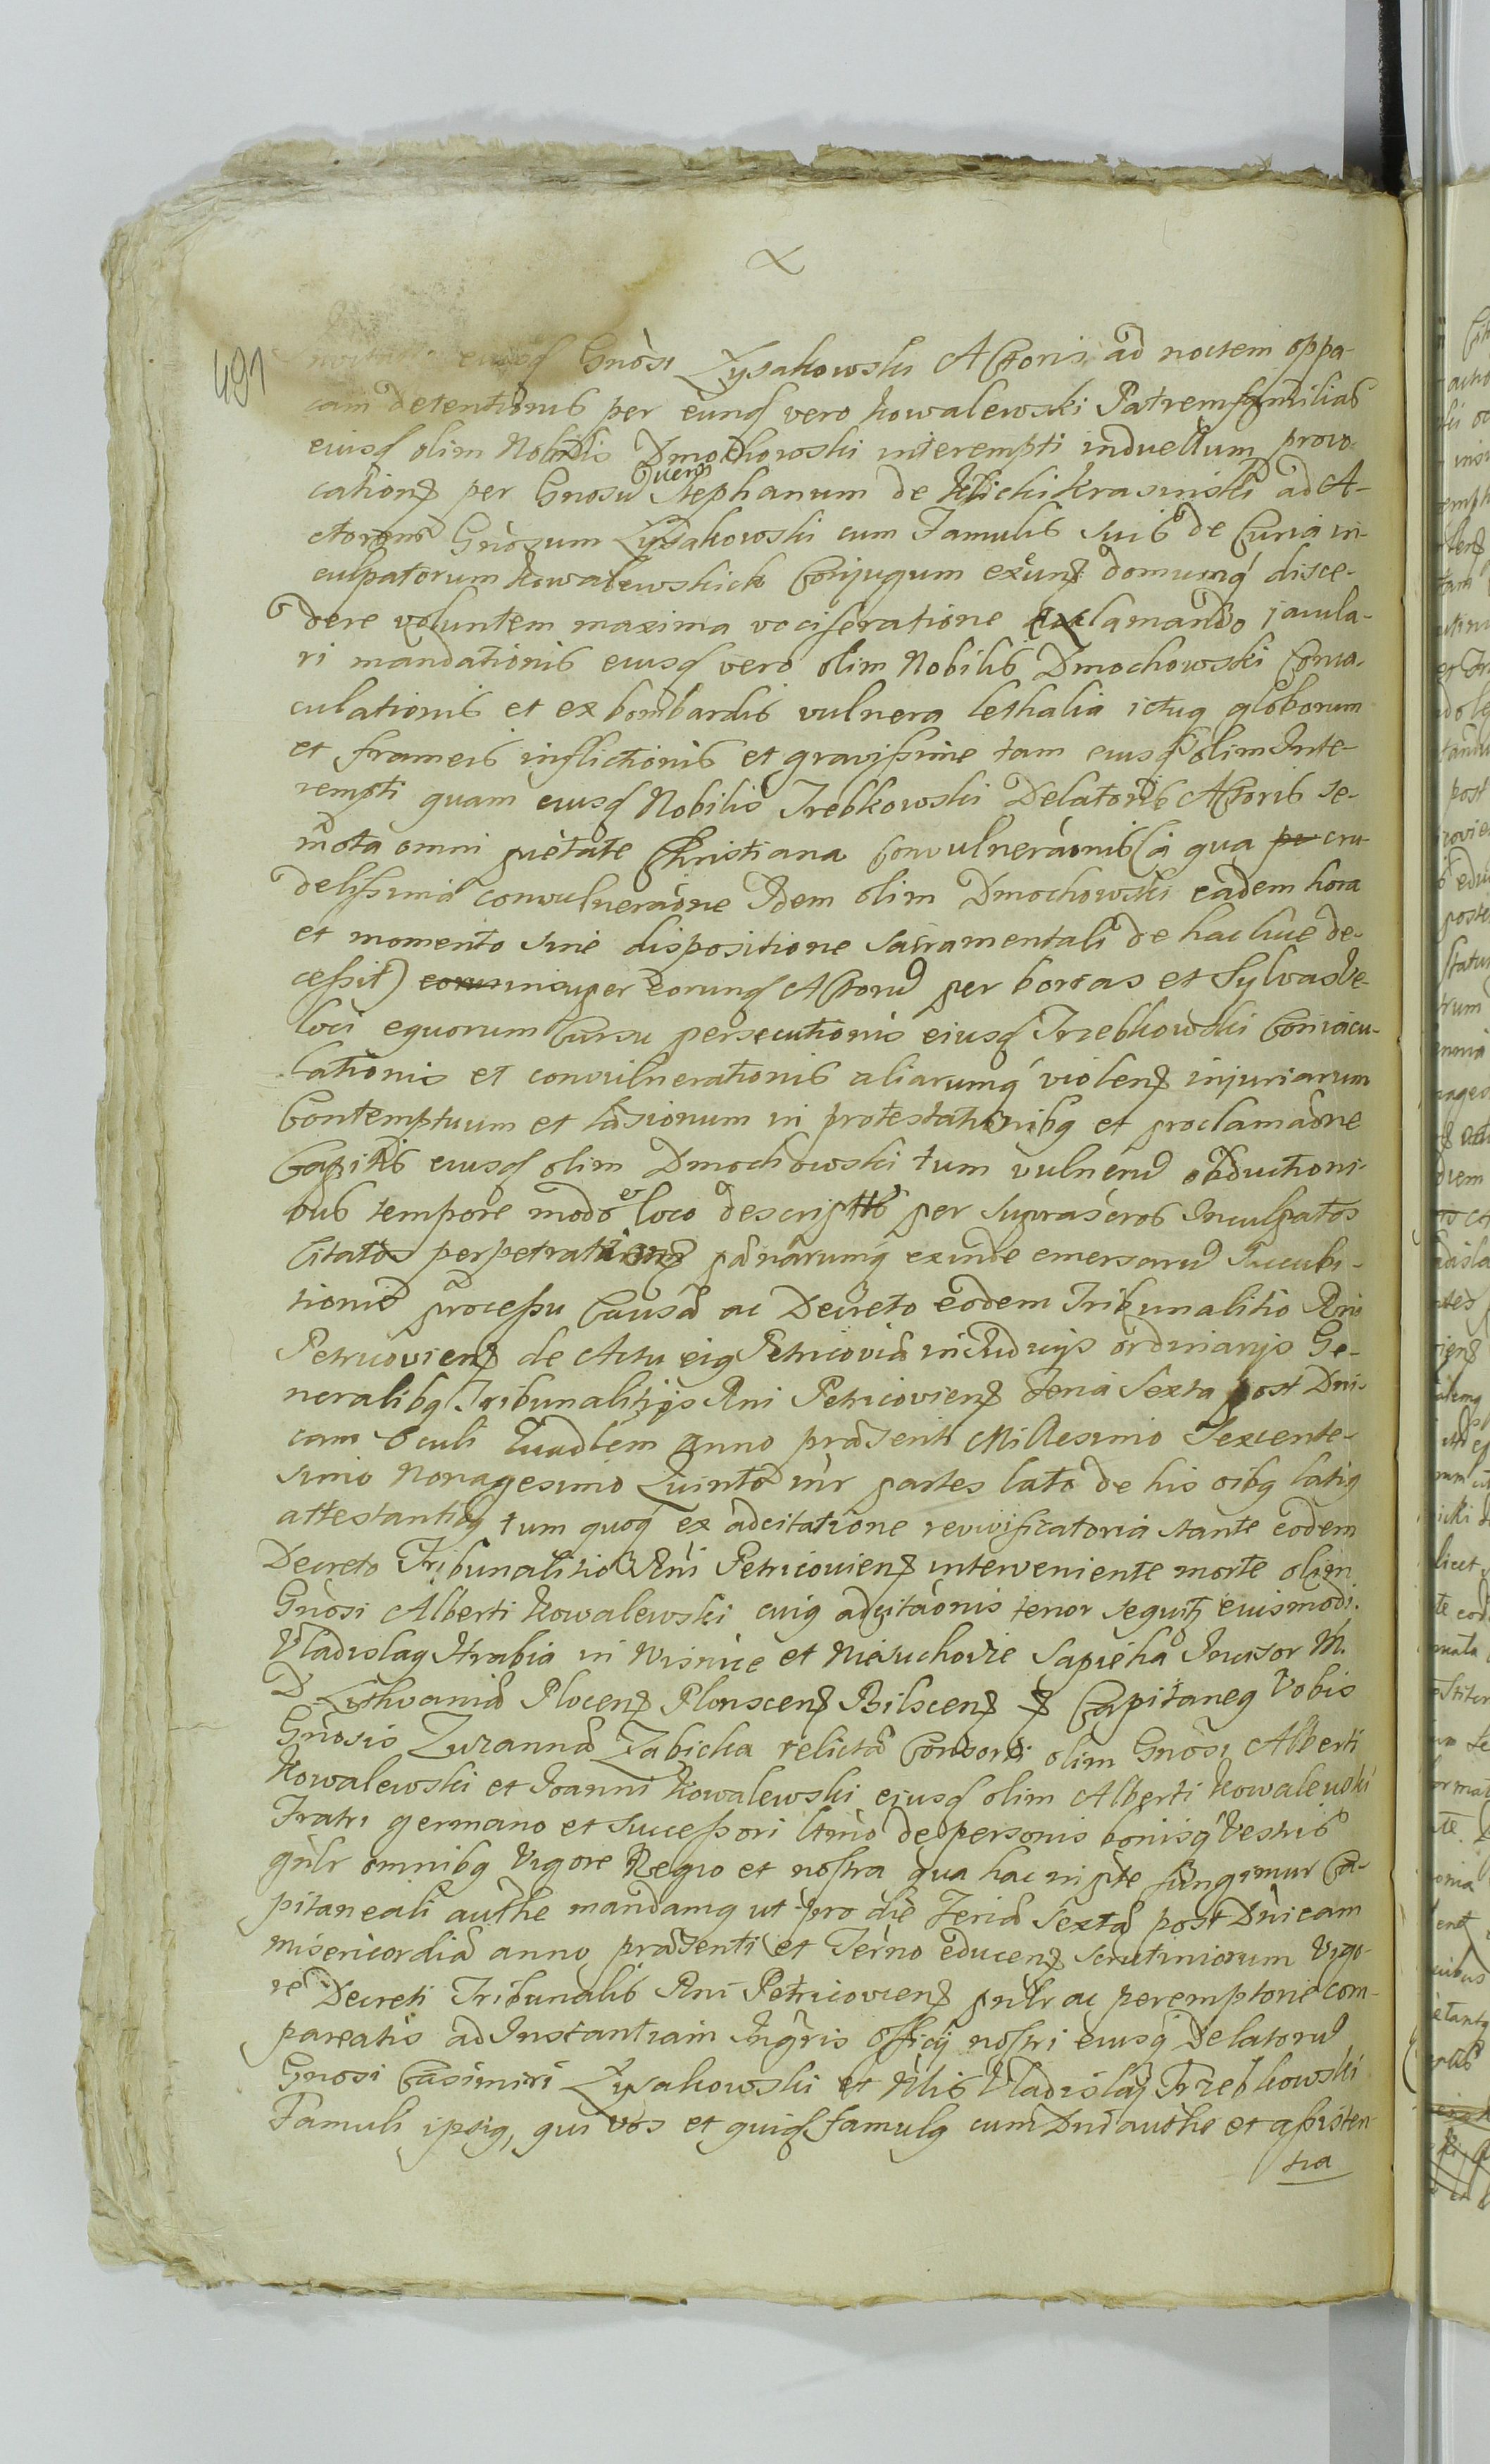 491
eiusq Gnosi Łysakowski Actoris ad noctem oppa-
cam detentionis per eunq vero Kowalewski Patremfamilias
eiusq olim Nobilis Dmochowski interempti in duellum provo-
cationę per Gnosu vero Stephanum de Klicki Krasinski ad A-
ctorem Gnosum Łysakowski cum Famulis suis de Curia in-
culpatorum Kowalewskich Conjugum exeunę domumq disce-
dere voluntem maxima vociferatione exclamando jacula-
ri mandationis eiusq vero olim Nobilis Dmochowski Conia-
culationis et ex bombardis vulnera lethalia ictuq globorum
et frameis inflictionis et gravissime tam eiusq olim Inte-
rempti quam eiusq Nobilis Trebkowski Delatoris Actoris se-
mota omni pietate Christiana Convulneraonis (a qua pr cru-
delissima convulneraone Idem olim Dmochowski eadem hora
et momento sine dispositione sacramentali de hac luce de-
cessit) eoru insuper eorunq Actoru per borras et Sylvas Ve-
loci equorum Cursu persecutionis eiusq Trzebkowski Coniacu-
lationis et convulnerationis aliarumq violenę injuriarum
Contemptuum et laesionum in protestationibq et proclamaone
Capitis eiusq olim Dmochowski tum vulneru obductioni-
bus tempore modo et loco descriptis per suprascros Inculpatos
Citatos perpetrationę paenarumq exinde emersaru succubi-
tionis processu Causa ac Decreto eodem Tribunalitio Rni
Petricovienę de Actu eiq Petricoviae in Iudicijs ordinarijs Ge-
neralibq Tribunalitijs Rni Petricovienę Feria Sexta post Dni-
cam Oculi Quadlem anno praesenti Millesimo Sexcente-
simo Nonagesimo Quinto inr partes lato de his oibq latiq
attestantibq tum quoq ex adcitatione revivificatoria stante eodem
Decreto Tribunalitio Rni Petricovienę interveniente morte olim
Gnosi Alberti Kowalewski cuiq adcitaonis tenor sequitę eiusmodi.
Vladislaq Hrabia in Wisnice et Niesuchoize Sapieha Incisor M.
D Lithvaniae Plocenę Plonscenę Bilscenę ę Capitaneq Vobis
Gnosis Zuzannae Zabicka relictae Consorti olim Gnosi Alberti
Kowalewski et Joanni Kowalewski eiusq olim Alberti Kowalewski
Fratri germano et successori ltimo de personis bonisq Vestris
gnlr omnibq Vigore Regio et nostra qua hac in pte fungimur Ca-
pitaneali authe mandamq ut pro die Feria Sexta post Dnicam
misericordiae anno praesenti et Termo educenę scrutiniorum Vigo-
re Decreti Tribunalis Rni Petricovienę pnlr ac peremptorie com-
pareatis ad Instantiam Ingris Officij nostri eiusq Delatoru
Gnosi Casimiri Łysakowski et Nlis Vladislaj Trzebkowski
Famuli ipsiq, qui vos et quiq famulq cum Dni authe et assisten-
tia